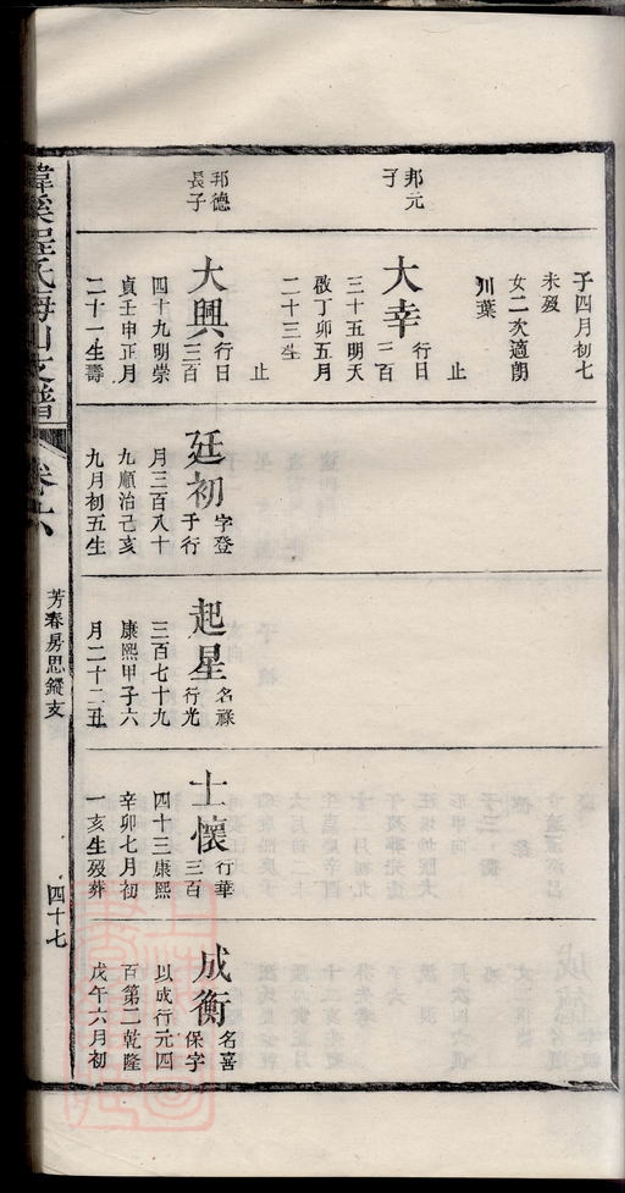 邦元
子
邦德
長子
子四月初七
未歿
女二次適朗
川葉
止
大幸
行日
三百
三十五明天
啟丁卯五月
二十三生
止
大興
行日
三百
四十九明崇
貞壬申正月
二十一生壽
廷初
字登
于行
月三百八十
九順治己亥
九月初五生
起星
名祿
行光
三百七十九
康熙甲子六
月二十二丑
士懷
行華
三百
四十三康熙
辛卯七月初
一亥生歿葬
成衡
名喜
保字
以成行元四
百第二乾隆
戊午六月初
韓溪程氏梅山支譜
卷六
芳春房思鏦支
四十七